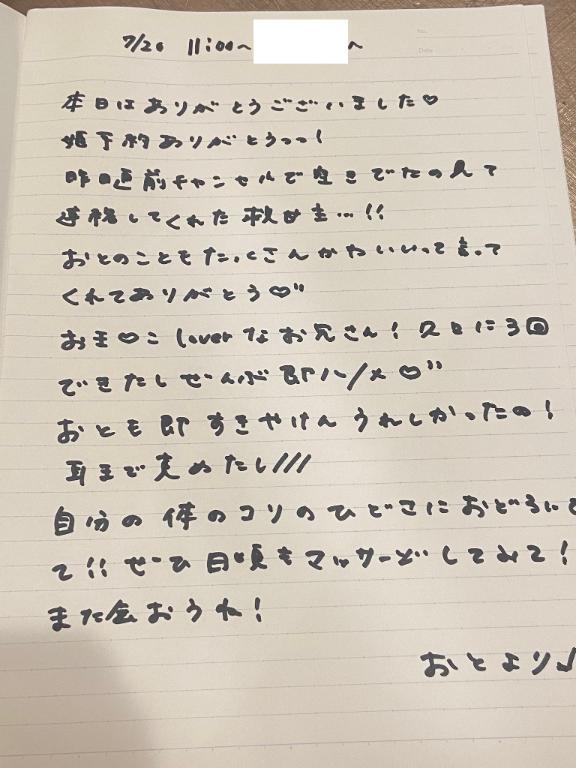 7/20 11:00〜 へ
本日はありがとうございました♡
姫予約ありがとうっっ!
昨日直前キャンセルで空きでたの見て
連絡してくれた救世主…!!
おとのこともたくさんかわいいって言って
くれてありがとう♡"
お王♡こ loverなお兄さん! 久日に3回
できたしぜーんぶ即ハ/メ♡"
おとも即すきやけんうれしかったの!
耳まで責めたし///
自分の体のコリのひどさにおどろいと
て!!ぜひ日頃もマッサージしてみて!
また会おうね!
おとより♩
No.
Date